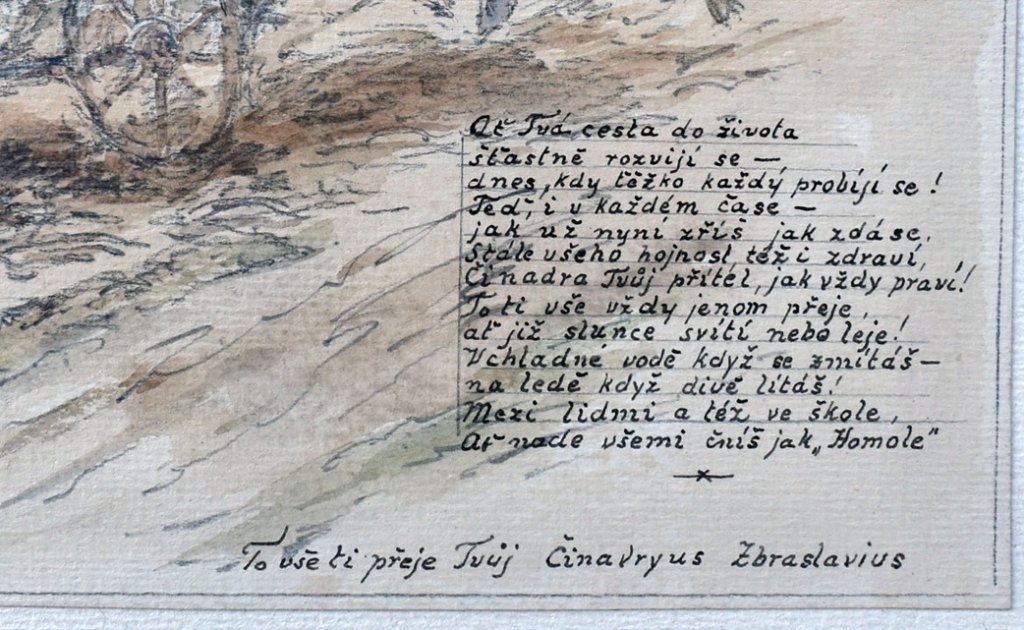 Ať Tvá cesta do života
šťastně rozvijí se —
dnes, kdy těžko každý probíjí se!
Teď, i v každém čase —
jak už nyní zříš jak zdá se,
Stále všeho hojnost, též i zdraví,
Činadra Tvůj přítel, jak vždy praví!
To ti vše vždy jenom přeje,
ať již slunce svítí nebo leje!
V chladné vodě když se zmítáš —
na ledě když divě lítáš!
Mezi lidmi a též ve škole,
Ať nade všemi čníš jak „Homole"
To vše ti přeje Tvůj Činavryus Zbraslavius